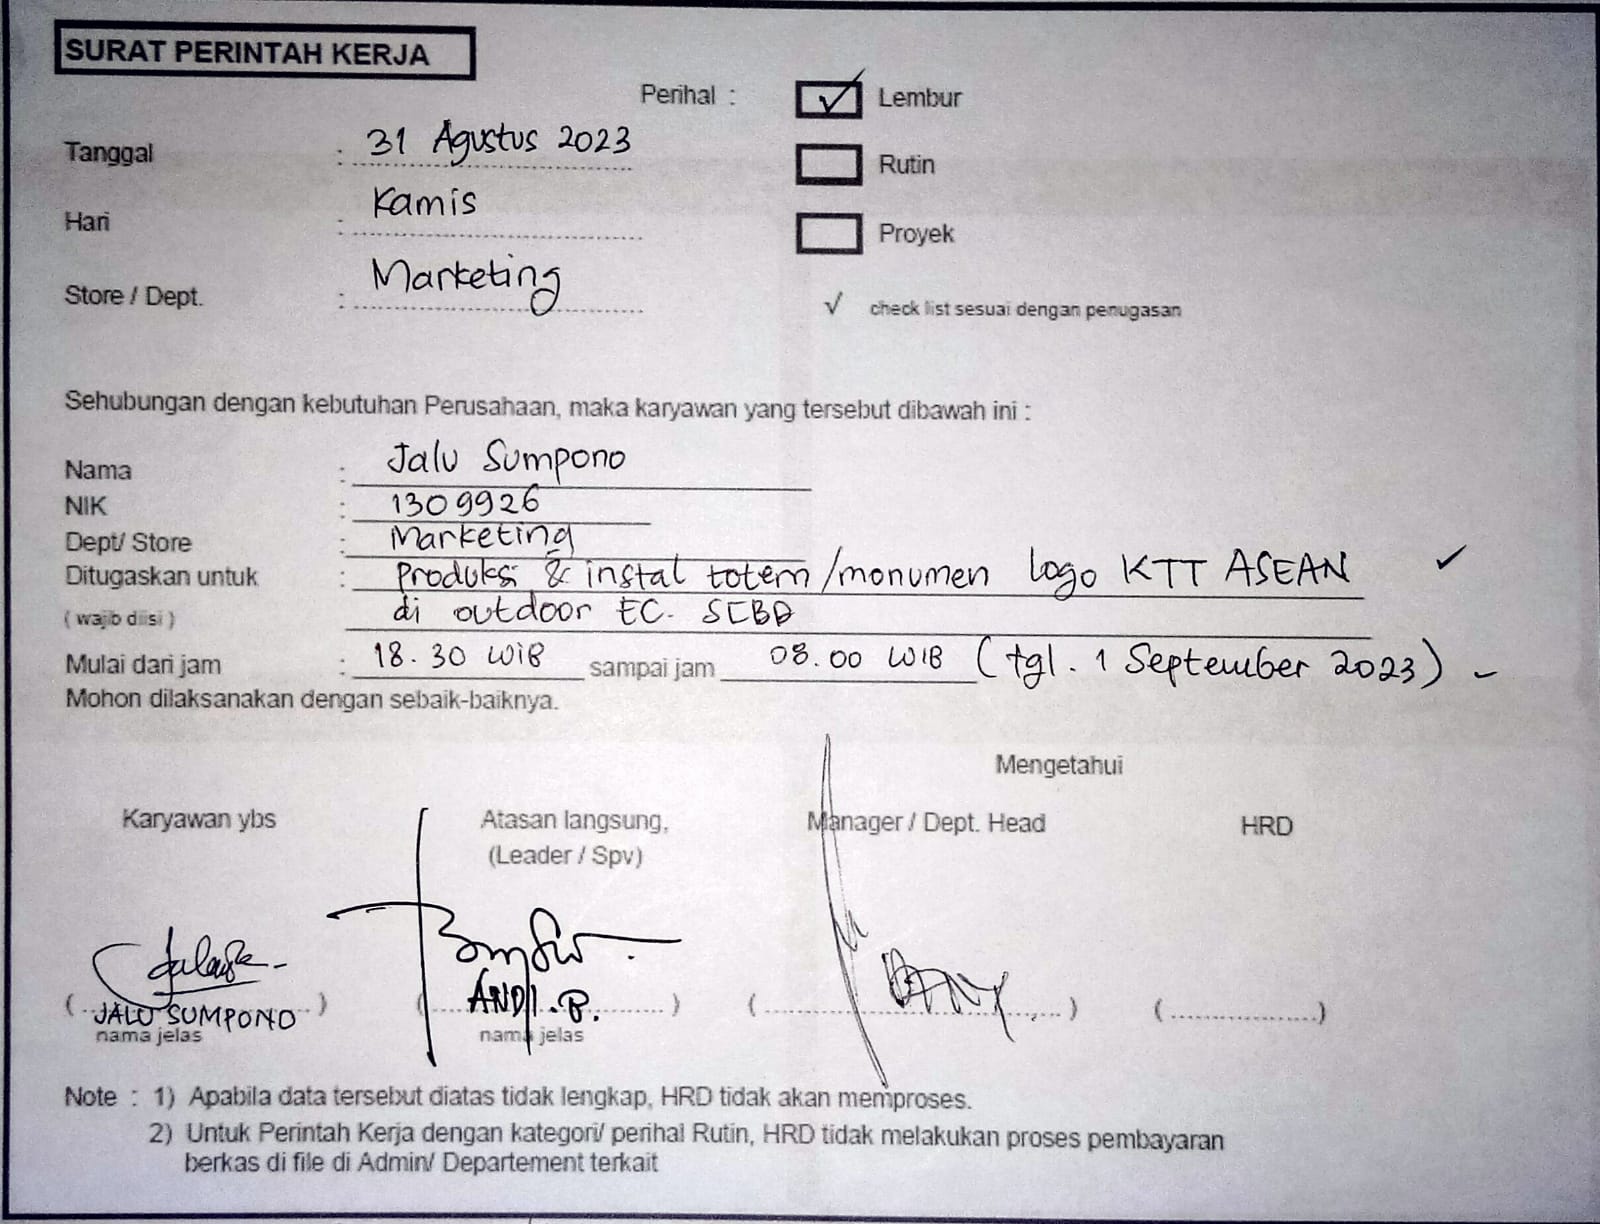 SURAT PERINTAH KERJA
Perihal : ✓ Lembur
Tanggal : 31 Agustus 2023
Rutin
Hari : Kamis
Proyek
Store / Dept. : Marketing
√ check list sesuai dengan penugasan
Sehubungan dengan kebutuhan Perusahaan, maka karyawan yang tersebut dibawah ini :
Nama : Jalu Sumpono
NIK : 1309926
Dept/ Store : Marketing
Ditugaskan untuk : Produksi & instal totem/monumen logo KTT ASEAN ✓
( wajib diisi ) di outdoor EC. SCBD
Mulai dari jam : 18.30 WIB sampai jam 08.00 WIB (tgl. 1 September 2023)
Mohon dilaksanakan dengan sebaik-baiknya.
Mengetahui
Karyawan ybs Atasan langsung, Manager / Dept. Head HRD
(Leader / Spv)
(JALU SUMPONO) (ANDI. B.) (..........) (..........)
nama jelas nama jelas
Note : 1) Apabila data tersebut diatas tidak lengkap, HRD tidak akan memproses.
2) Untuk Perintah Kerja dengan kategori/ perihal Rutin, HRD tidak melakukan proses pembayaran
berkas di file di Admin/ Departement terkait